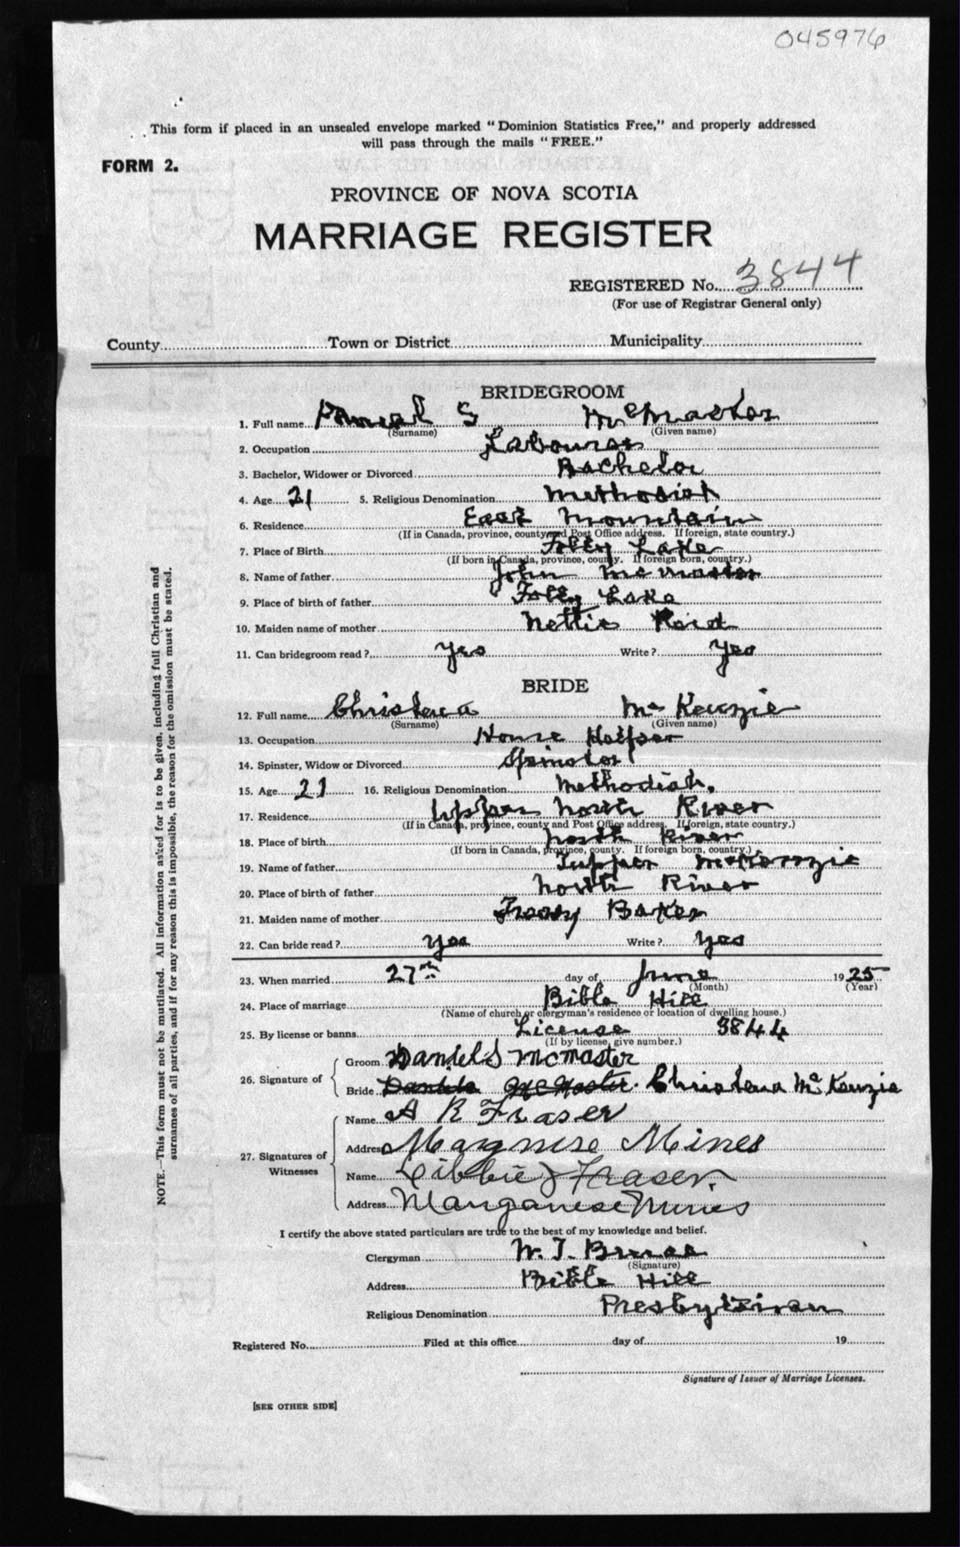 045976
This form if placed in an unsealed envelope marked "Dominion Statistics Free," and properly addressed
will pass through the mails "FREE."
FORM 2.
PROVINCE OF NOVA SCOTIA
MARRIAGE REGISTER
REGISTERED No. 3844
(For use of Registrar General only)
County Town or District Municipality
BRIDEGROOM
1. Full name Daniel S McMaster
(Surname) (Given name)
2. Occupation Labourer
3. Bachelor, Widower or Divorced Bachelor
4. Age 21 5. Religious Denomination Methodist
6. Residence East Mountain
(If in Canada, province, county and Post Office address. If foreign, state country.)
7. Place of Birth Folly Lake
(If born in Canada, province, county. If foreign born, country.)
8. Name of father John McMaster
9. Place of birth of father Folly Lake
10. Maiden name of mother Nettie Reid
11. Can bridegroom read? Yes Write? Yes
BRIDE
12. Full name Christena McKenzie
(Surname) (Given name)
13. Occupation House Helper
14. Spinster, Widow or Divorced Spinster
15. Age 21 16. Religious Denomination Methodist.
17. Residence Upper North River
(If in Canada, province, county and Post Office address. If foreign, state country.)
18. Place of birth North River
(If born in Canada, province, county. If foreign born, country.)
19. Name of father Tupper McKenzie
20. Place of birth of father North River
21. Maiden name of mother Baker
22. Can bride read? Yes Write? Yes
23. When married 27th day of June 1925
(Month) (Year)
24. Place of marriage Bible Hill
(Name of church or clergyman's residence or location of dwelling house.)
25. By license or banns License 3844
(If by license, give number.)
26. Signature of
Groom Daniel S McMaster
Bride Daniel S McMaster. Christena McKenzie
27. Signatures of Witnesses
Name A R Fraser
Address Mangnise Mines
Name Libbie J Fraser.
Address Manganese Mines
I certify the above stated particulars are true to the best of my knowledge and belief.
Clergyman W. T. Bruce
(Signature)
Address Bible Hill
Religious Denomination Presbyterian
Registered No. Filed at this office day of 19
Signature of Issuer of Marriage Licenses.
[SEE OTHER SIDE]
NOTE.—This form must not be mutilated. All information asked for is to be given, including full Christian and
surnames of all parties, and if for any reason this is impossible, the reason for the omission must be stated.